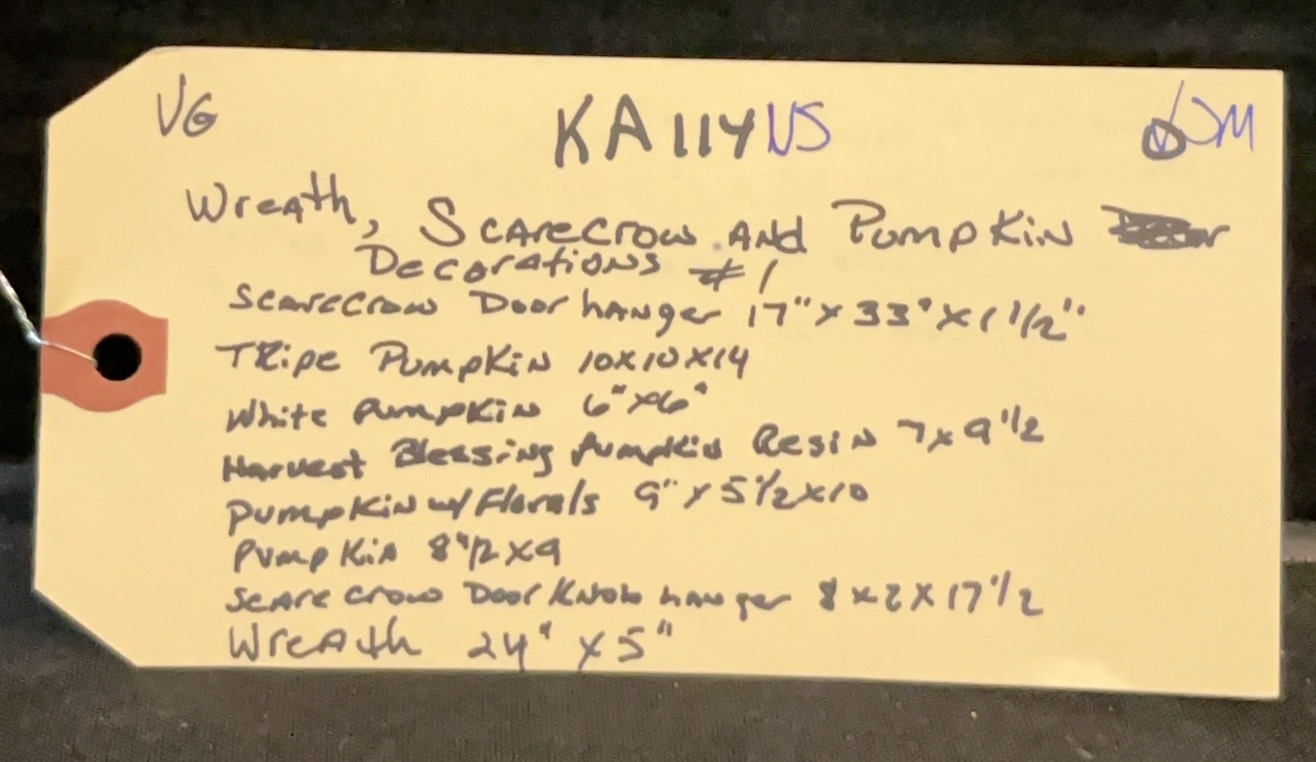 VG KA114NS JM
Wreath, Scarecrow And Pumpkin
Decorations #1
Scarecrow Door hanger 17" x 33" x 1 1/2"
TRipe Pumpkin 10x10x14
White Pumpkin 6" x 6"
Harvest Blessing Pumpkin Resin 7 x 9 1/2
Pumpkin w/ Florals 9" x 5 1/2 x 10
Pumpkin 8 1/2 x 9
Scarecrow Door Knob hanger 8 x 2 x 17 1/2
Wreath 24" x 5"